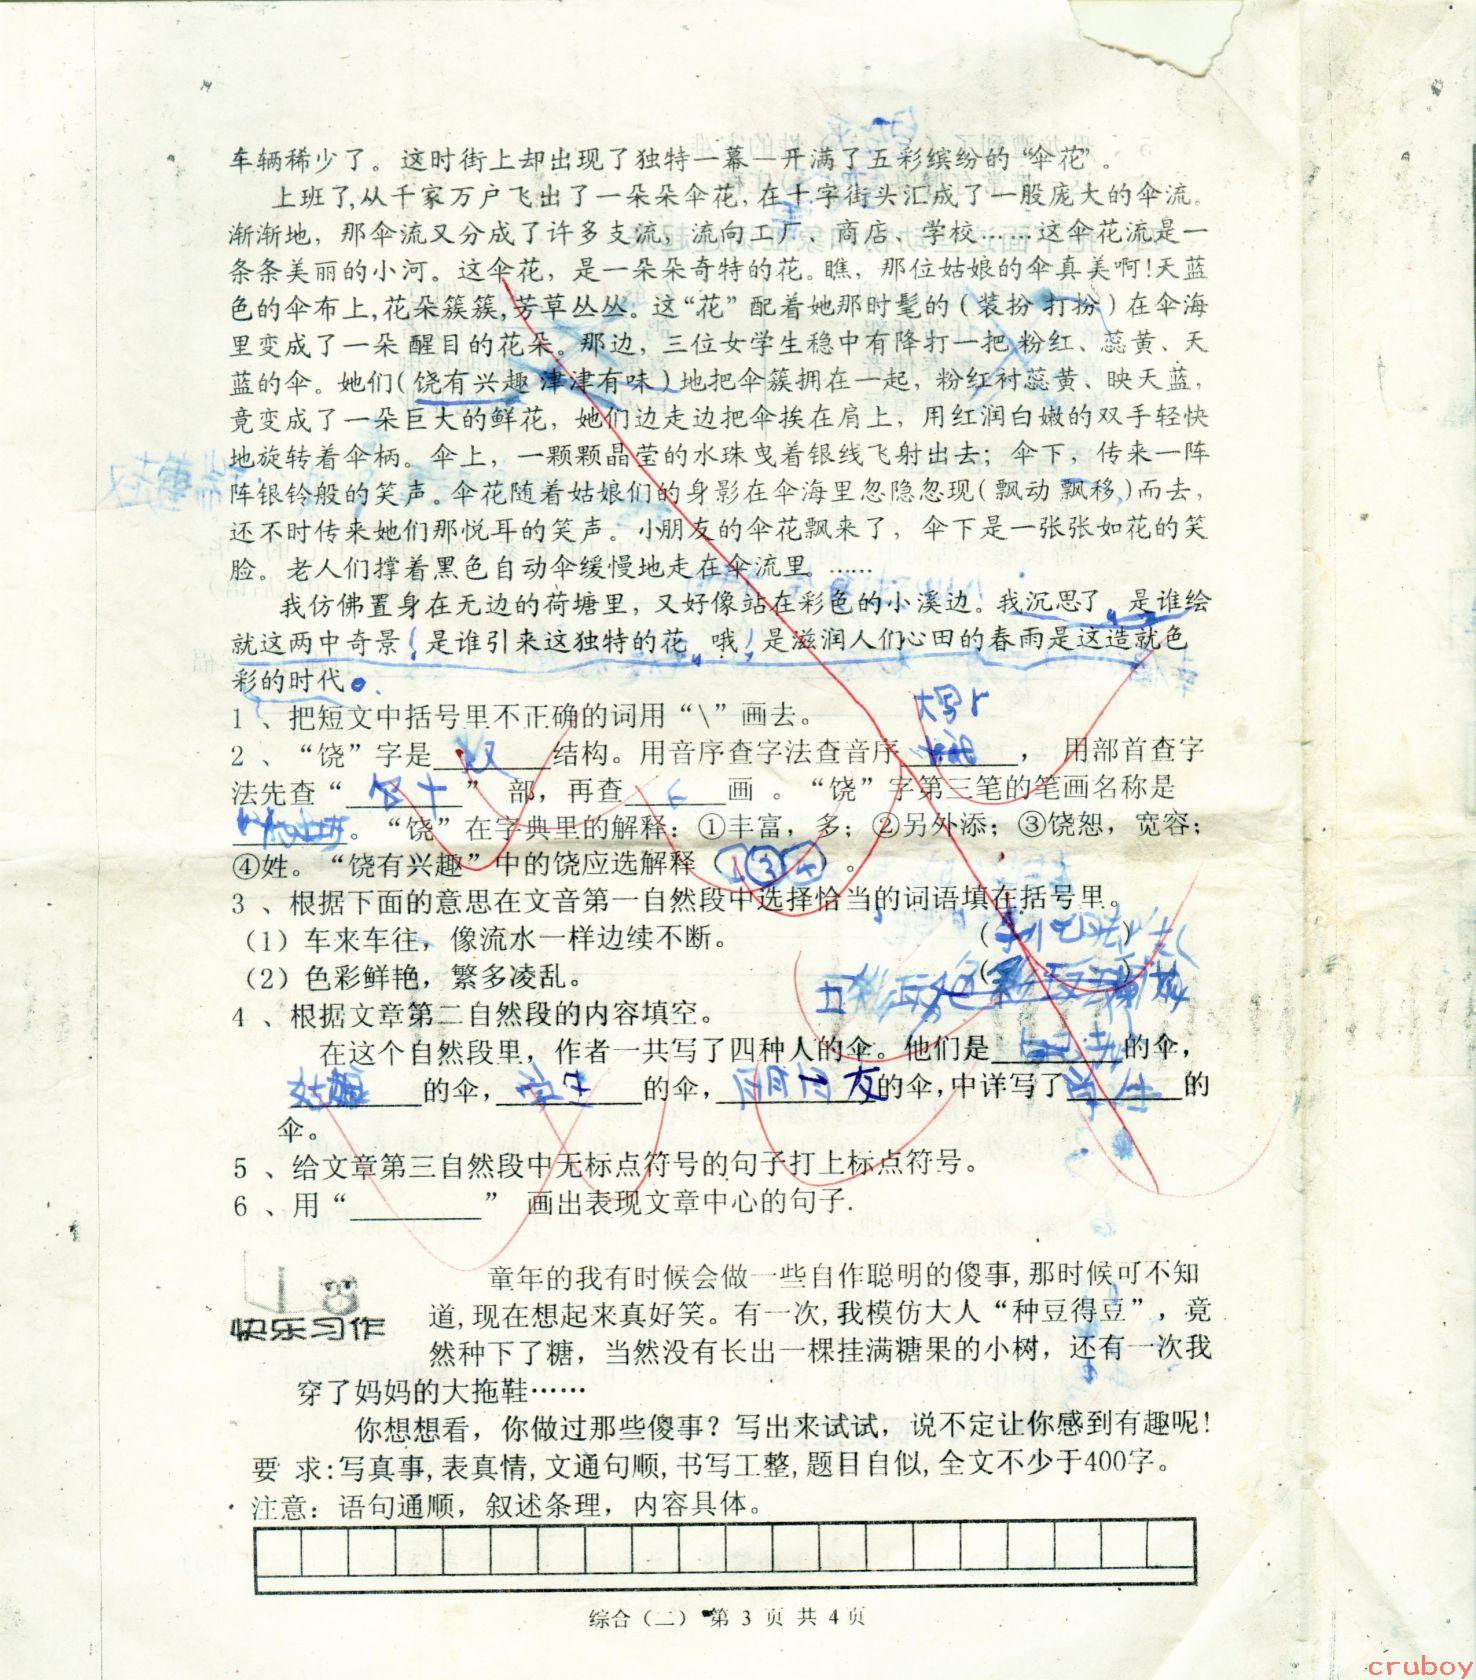 车辆稀少了。这时街上却出现了独特一幕一开满了五彩缤纷的“伞花”。
上班了,从千家万户飞出了一朵朵伞花,在十字街头汇成了一股庞大的伞流。
渐渐地，那伞流又分成了许多支流，流向工厂、商店、学校……这伞花流是一
条条美丽的小河。这伞花，是一朵朵奇特的花。瞧，那位姑娘的伞真美啊!天蓝
色的伞布上,花朵簇簇,芳草丛丛。这“花”配着她那时髦的(装扮 打扮)在伞海
里变成了一朵醒目的花朵。那边，三位女学生稳中有降打一把粉红、蕊黄、天
蓝的伞。她们(饶有兴趣 津津有味)地把伞簇拥在一起，粉红衬蕊黄、映天蓝，
竟变成了一朵巨大的鲜花，她们边走边把伞挨在肩上，用红润白嫩的双手轻快
地旋转着伞柄。伞上，一颗颗晶莹的水珠曳着银线飞射出去；伞下，传来一阵
阵银铃般的笑声。伞花随着姑娘们的身影在伞海里忽隐忽现(飘动 飘移)而去，
还不时传来她们那悦耳的笑声。小朋友的伞花飘来了，伞下是一张张如花的笑
脸。老人们撑着黑色自动伞缓慢地走在伞流里。……
我仿佛置身在无边的荷塘里，又好像站在彩色的小溪边。我沉思了，是谁绘
就这两中奇景！是谁引来这独特的花，哦！是滋润人们心田的春雨是这造就色
彩的时代。
1、把短文中括号里不正确的词用“\”画去。
大写r
2、“饶”字是 双 结构。用音序查字法查音序，用部首查字
法先查“”部，再查画。“饶”字第三笔的笔画名称是
。“饶”在字典里的解释：①丰富，多；②另外添；③饶恕，宽容；
④姓。“饶有兴趣”中的饶应选解释（①③④）。
3、根据下面的意思在文音第一自然段中选择恰当的词语填在括号里。
(1)车来车往，像流水一样边续不断。（）
(2)色彩鲜艳，繁多凌乱。（）
4、根据文章第二自然段的内容填空。
在这个自然段里，作者一共写了四种人的伞。他们是的伞，
姑娘的伞，学生的伞，朋友的伞,中详写了学生的
伞。
5、给文章第三自然段中无标点符号的句子打上标点符号。
6、用“________” 画出表现文章中心的句子.
快乐习作
童年的我有时候会做一些自作聪明的傻事,那时候可不知
道,现在想起来真好笑。有一次,我模仿大人“种豆得豆”，竟
然种下了糖，当然没有长出一棵挂满糖果的小树，还有一次我
穿了妈妈的大拖鞋……
你想想看，你做过那些傻事？写出来试试，说不定让你感到有趣呢!
要 求:写真事,表真情,文通句顺,书写工整,题目自似,全文不少于400字。
注意：语句通顺，叙述条理，内容具体。
综合（二） 第 3 页 共 4 页
cruboy